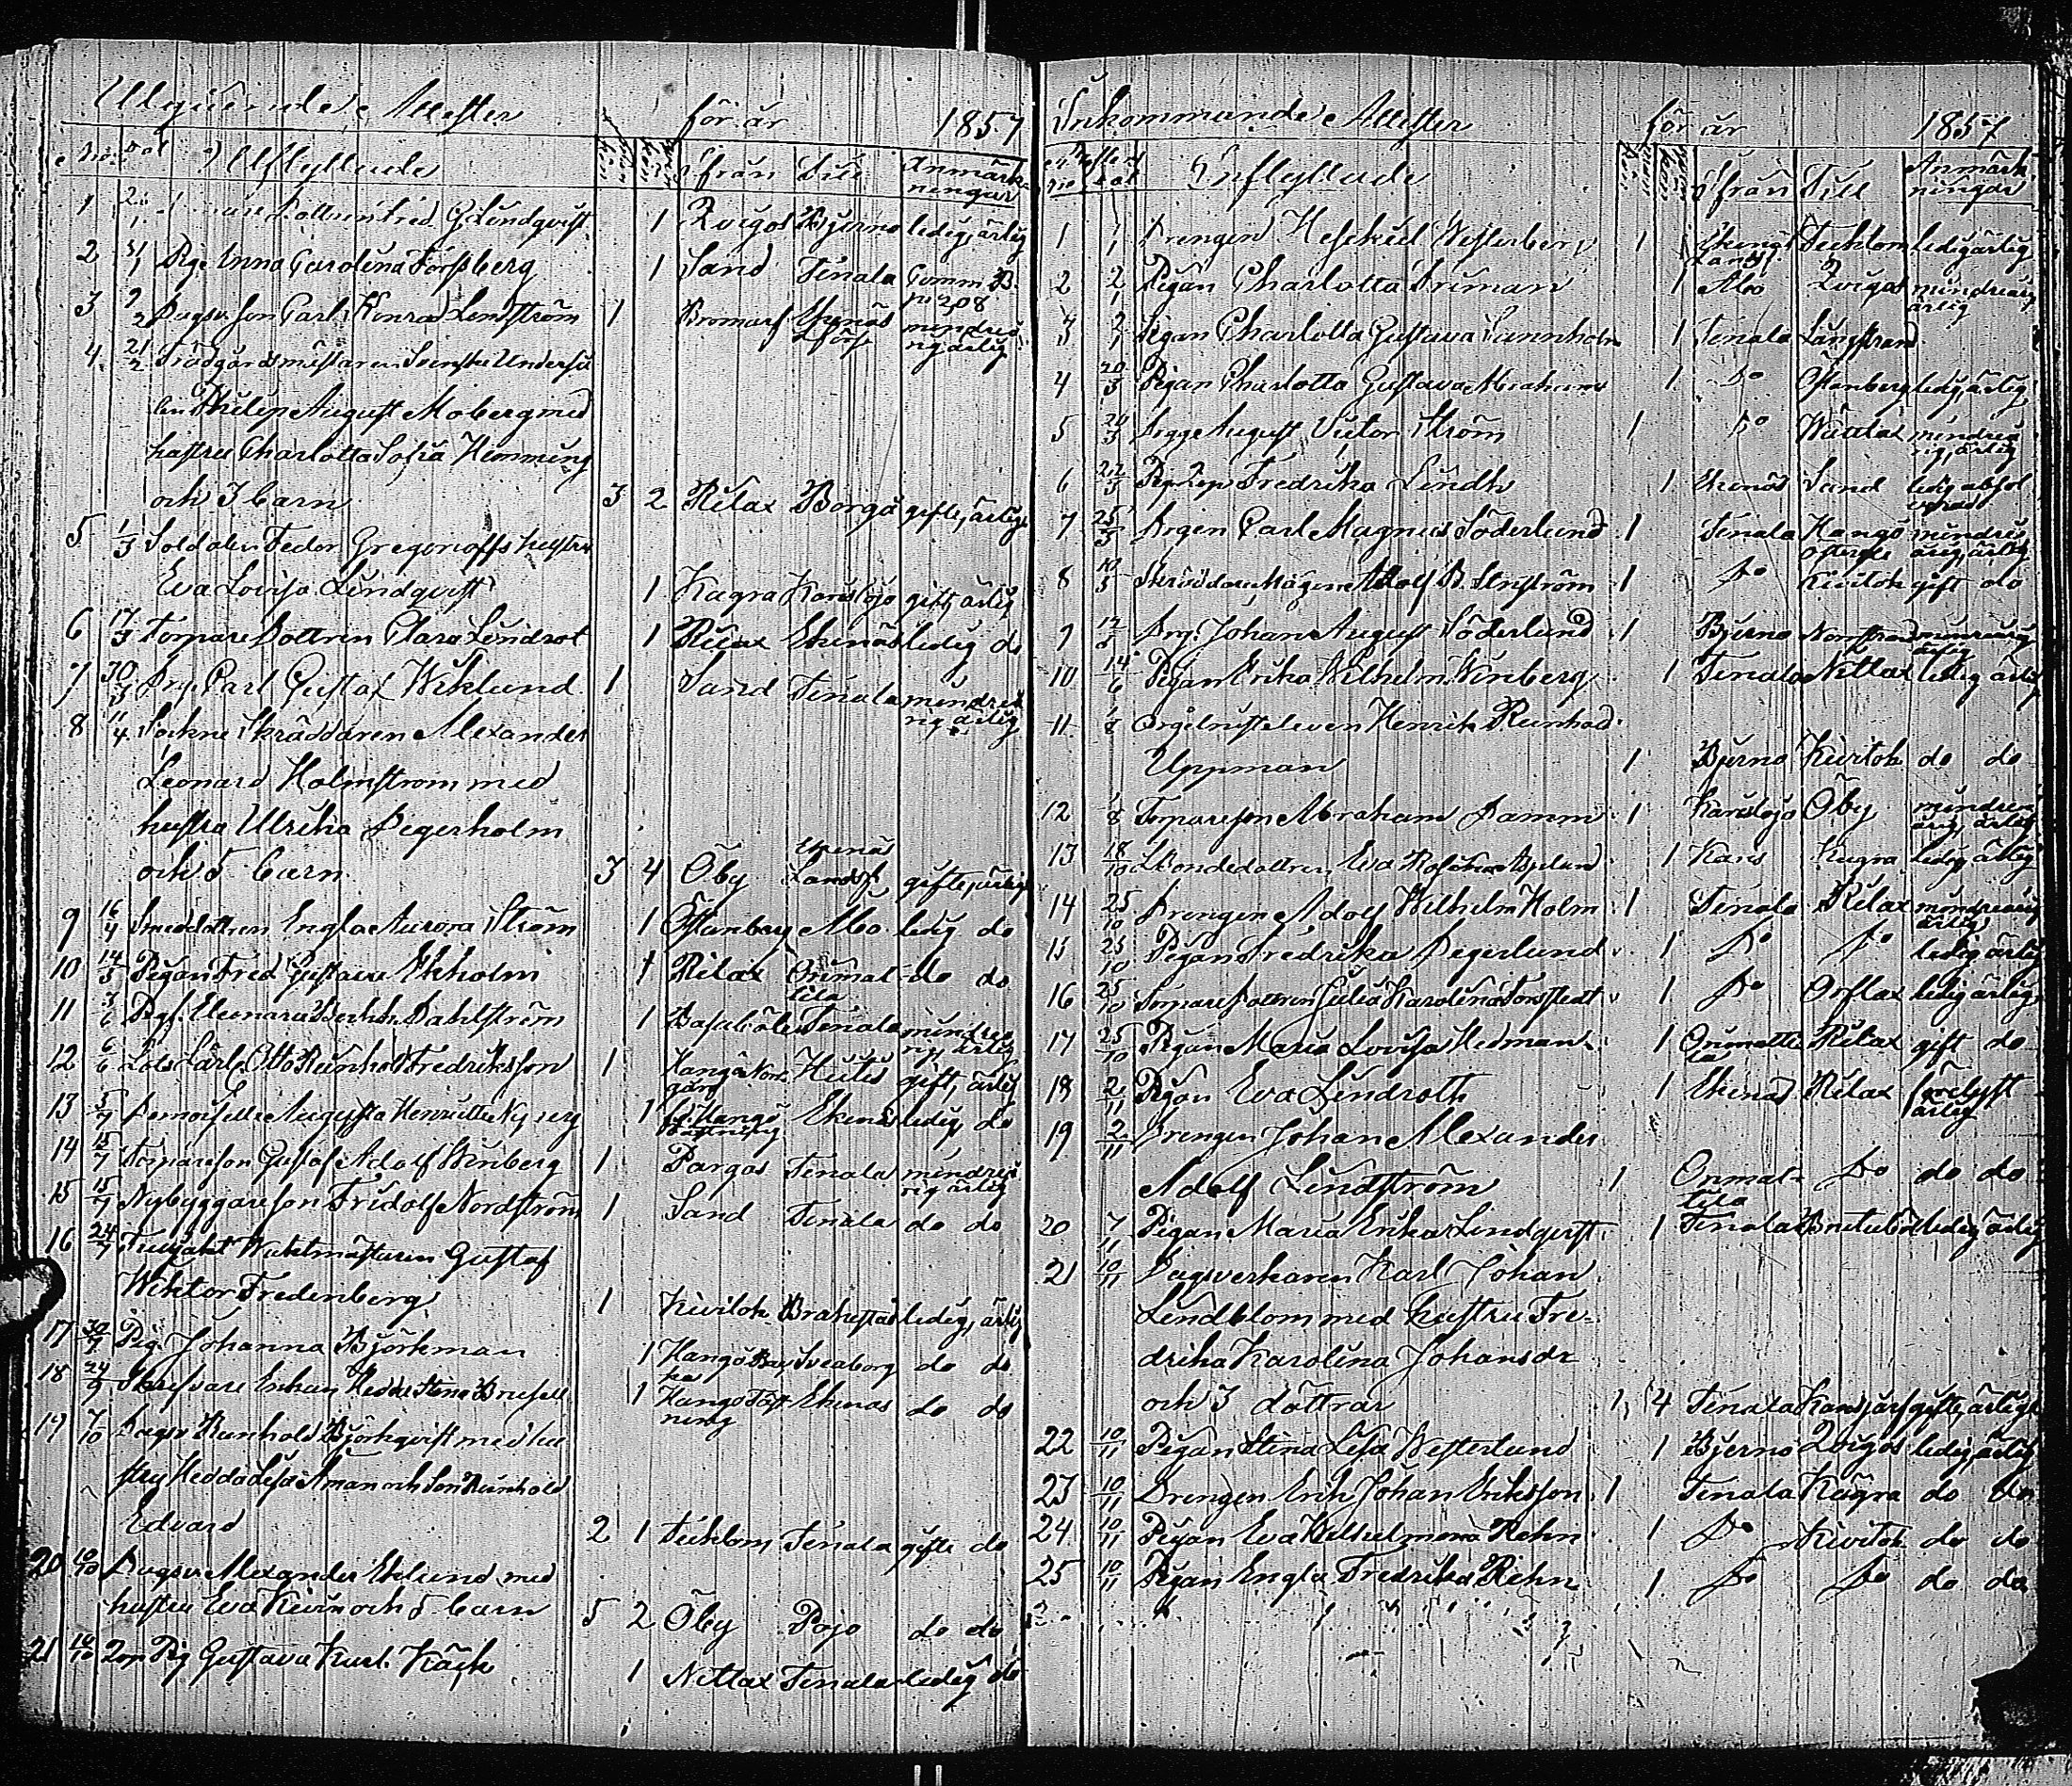 Utgående Attester för år 1857
No Utflyttade från Till Anmärkningar
1 dottren Fred. G. Lundqvist 1 Zvigos Bjerno ledig, ärlig
2 31/1 Pig. Anna Carolina Forssberg 1 Sand Tenala Comm. B.
p: 208
3 2/2 Dagsv. son Carl Konrad Lindström 1 Bromarf Ekenäs mindreå
rig ärlig
4 21/2 Trädgårdsmästaren Svenske Underså
ten Philip August Moberg med
hustru Charlotta Sofia Hemming
och 3 barn 3 2 Rilax Borgå gifte, ärlige
5 1/3 Soldaten Fedor Gregorioffs hustru
Eva Lovisa Lindqvist 1 Kagra Karislojo gift, ärlig
6 17/3 Torpare dottren Clara Lindrot 1 Rilax Ekenäs ledig do
7 30/3 Drg. Carl Gustaf Wiklund 1 Sand Tenala mindreå
rig ärlig
8 11/4 Sockne Skräddaren Alexander
Leonard Holmström med
hustru Ulrika Degerholm
Ekenäs
och 5 barn 3 4 Öby Landsf. gifte, ärlige
9 16/4 Smeddottren Engla Aurora Ström 1 Östanberg Åbo ledig do
10 14/5 Pigan Fred. Gustava Ekholm 1 Rilax Orimat- do do
tila
11 3/6 Pigf. Eleonora Dahlström 1 Tenala mindreå
rig, ärlig
12 6/6 Lots Carl Otto Reinhold Fredriksson 1 Hangö Hitis gift, ärlig
13 5/7 Demoiselle Augusta Henriette Nyberg 1 Hangö Ekenäs ledig do
14 15/7 Torpareson Gustaf Adolf Winberg 1 Pargas Tenala mindreå
rig ärlig
15 15/7 Nybyggareson Fridolf Nordström 1 Sand Tenala do do
16 24/7 Gustaf
Wiktor Fredenberg 1 Kivitok Brahestad ledig, ärlig
17 30/7 Pig. Johanna Björkman 1 Hangö Sveaborg do do
18 24/9 Enkan Hedda Stina 1 Hangö Fäst Ekenäs do do
ning
19 7/10 Dagsv. Reinhold Björkqvist med hu
stru Hedda Lisa Åman och Son Reinhold
Edvard 2 1 Tecktom Tenala gifte do
20 10/10 Dagsv. Alexander Eklund med
hustru Eva och 5 barn 5 2 Öby Pojo do do
21 Pig Gustava Karl. Käck 1 Nitlax Tenala ledig do
Inkommande Attester för år 1857
No Inflyttade från Till Anmärkningar
1 1/1 Drengen Heskiel Westerberg 1 Ekenäs Tecktom ledig ärlig
Landsf.
2 2/1 Pigan Charlotta Friman 1 Åbo Zvigos mindreårig
ärlig
3 2/1 Pigan Charlotta Gustava Sannholm 1 Tenala Långstrand
4 20/3 Pigan Charlotta Gustava Abrahams 1 Do Östanberg ledig, ärlig
5 20/3 Drgge August Victor Ström 1 Do Wättlax mindreå
rig, ärlig
6 22/3 Fredrika Lindh 1 Ekenäs Sand ledig absol
verad
7 25/3 Drgen Carl Magnus Söderlund 1 Tenala Hangö mindre
årig, ärlig
8 10/5 Adolf B. Stenström 1 Do Kivitok gift do
9 12/5 Drg. Johan August Söderlund 1 Bjerno Norrstrand mindreårig
ärlig
10 14/6 Pigan Erika Wilhelm. Winberg 1 Tenala Nitlax ledig ärlig
11 1/8 Orgelnist eleven Henrik Reinhold
Uppman 1 Bjerno Kivitok do do
12 1/8 Torpareson Abraham Damm 1 Karislojo Öby mindre
årig ärlig
13 18/10 dottren Eva 1 Karis Kagra ledig ärlig
14 25/10 Drengen Adolf Wilhelm Holm 1 Tenala Rilax mindreårig
ärlig
15 25/10 Pigan Fredrika Degerlund 1 Do Do ledig ärlig
16 25/10 Torpare Dottren Julia Karolina Tonstedt 1 Do Orslax ledig ärlig
17 25/10 Pigan Maria Lovisa Hedman 1 Orimatti Rilax gift do
la
18 2/11 Pigan Eva Lindroth 1 Ekenäs Rilax förelyst
ärlig
19 2/11 Drengen Johan Alexander
Adolf Lindström 1 Orimat- Do do do
tila
20 7/11 Pigan Maria Erika Lindqvist 1 Tenala ledig ärlig
21 10/11 Dagsverkaren Karl Johan
Lindblom med hustru Fre-
drika Karolina Johansdr
och 3 döttrar 1 4 Tenala Kansjärf gifte, ärlige
22 10/11 Pigan Stina Lisa Westerlund 1 Bjerno Zvigos ledig, ärlig
23 10/11 Drengen Erik Johan Eriksson 1 Tenala Kagra do do
24 10/11 Pigan Eva Wilhelmina Rehn 1 Do Kivitok do do
25 10/11 Pigan Engla Fredrika Rehn 1 Do Do do do